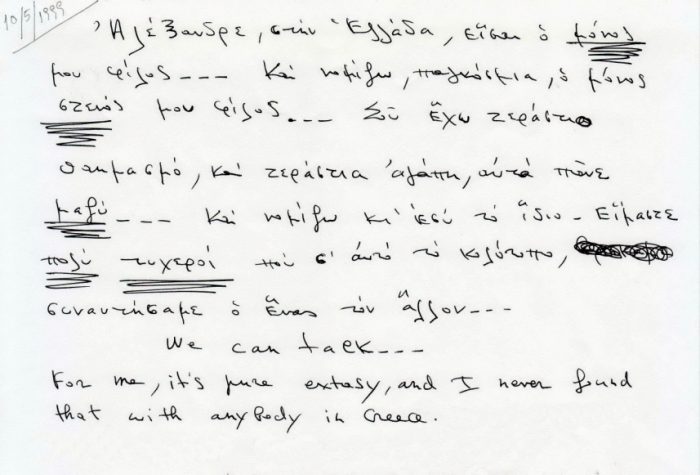 10/5/1999
Ἀλέξανδρε, στὴν Ἑλλάδα, εἶσαι ὁ μόνος
μου φίλος --- Καὶ νομίζω, παγκόσμια, ὁ μόνος
στενός μου φίλος --- Σοῦ ἔχω τεράστιο
θαυμασμό, καὶ τεράστια ἀγάπη, αὐτὰ πᾶνε
μαζύ --- Καὶ νομίζω κι' ἐσύ τὸ ἴδιο - Εἴμαστε
πολύ τυχεροί ποὺ σ' αὐτὸ τὸ κωλότοπο,
συναντήσαμε ὁ ἕνας τὸν ἄλλον ---
We can talk ---
For me, it's pure extasy, and I never found
that with anybody in Greece.